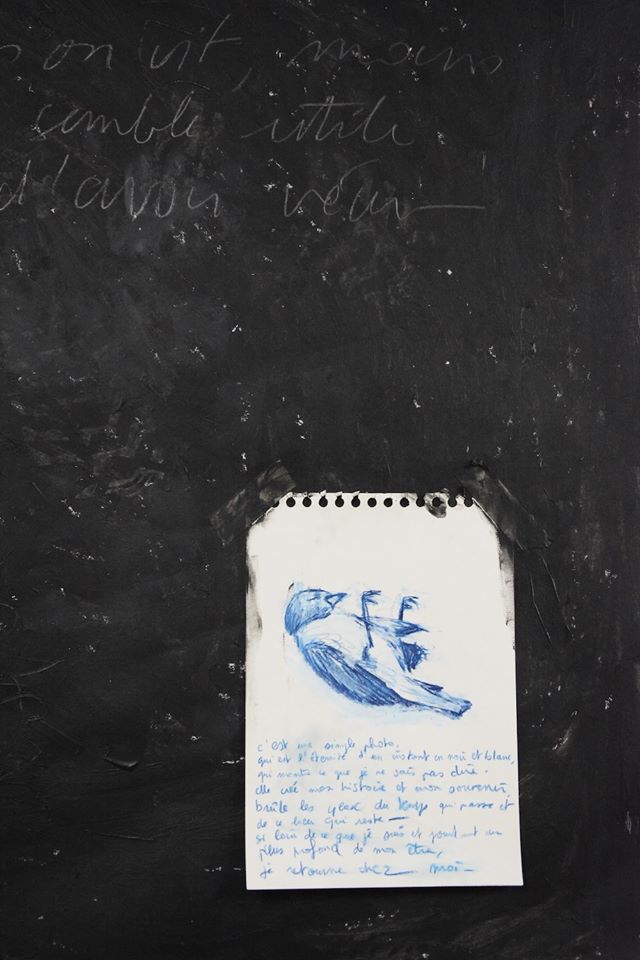 s on vit, moins
semble utile
d'avoir vécu—
c'est une simple photo,
qui est l'éternité d'un instant en noir et blanc,
qui montre ce que je ne sais pas dire.
elle crée mon histoire et mon souvenir,
brûle les yeux du temps qui passe et
de ce lieu qui reste —
si loin de ce que je suis et pourtant au
plus profond de mon être,
je retourne chez moi—